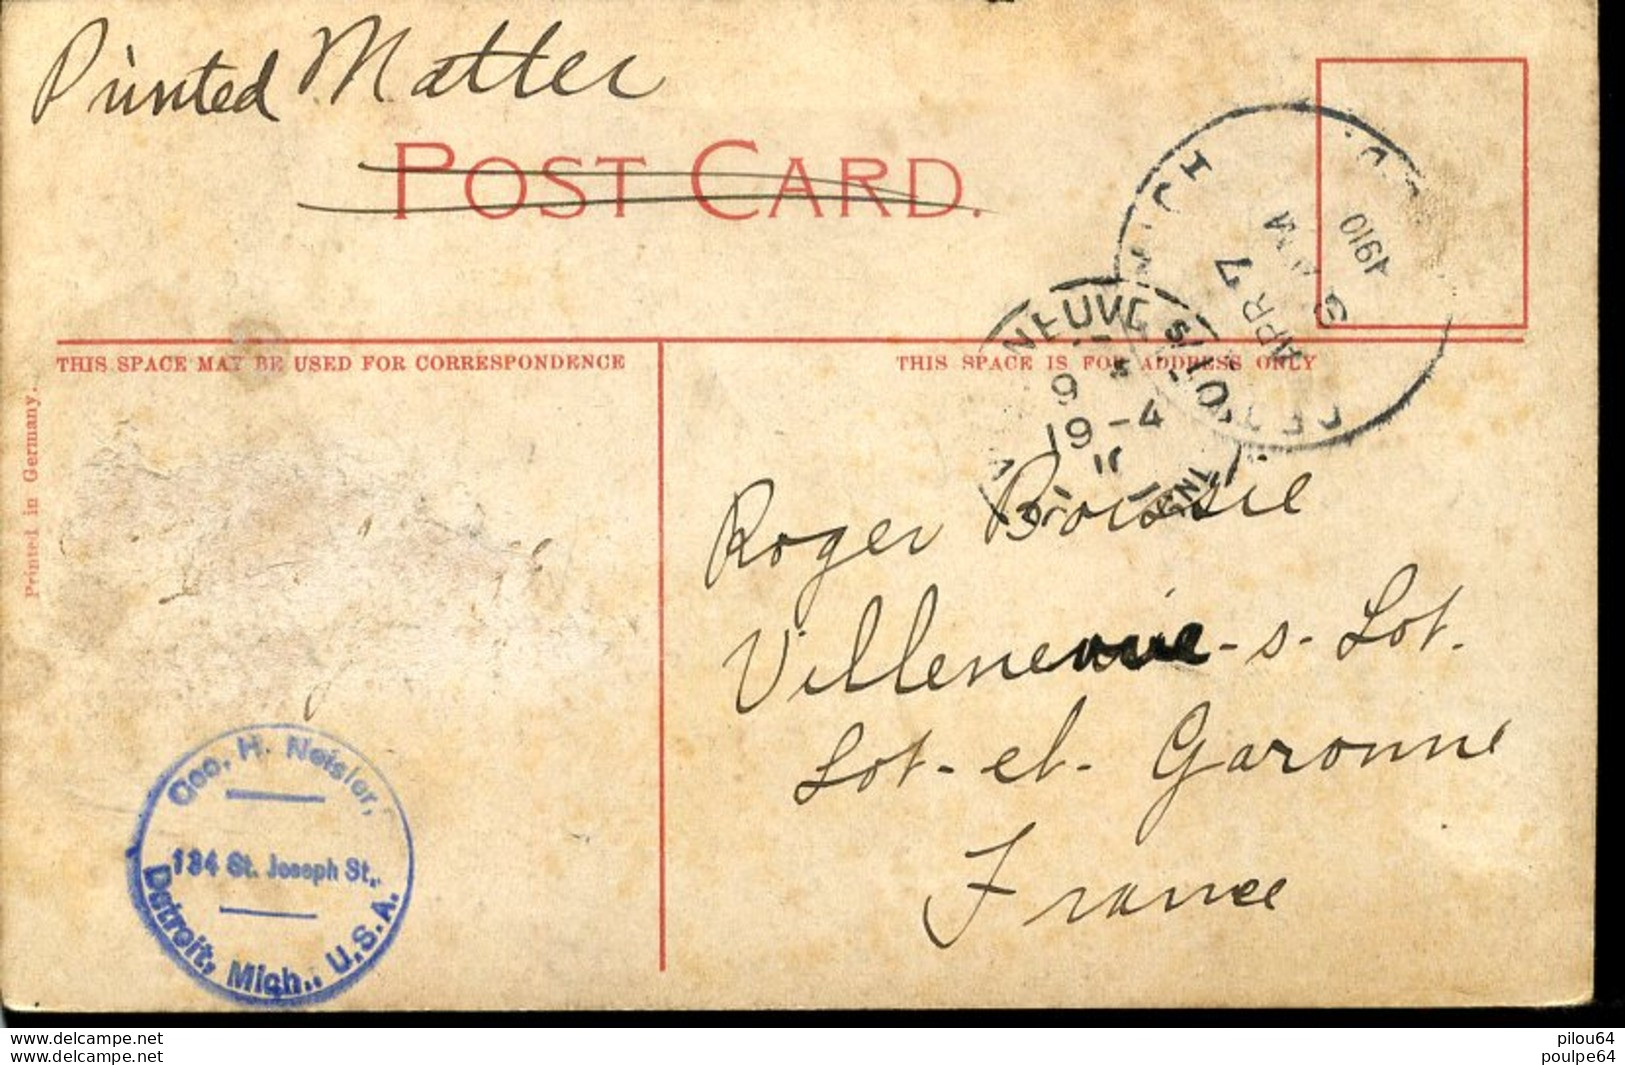 Printed Matter
POST CARD.
THIS SPACE MAY BE USED FOR CORRESPONDENCE
THIS SPACE IS FOR ADDRESS ONLY
Printed in Germany.
MICH
APR 7
1910
NEUVE S/LOT
19-4
Roger Boissie
Villeneuve-s-Lot.
Lot-et-Garonne
France
Geo. H. Neisler,
134 St. Joseph St.,
Detroit, Mich., U.S.A.
pilou64
poulpe64